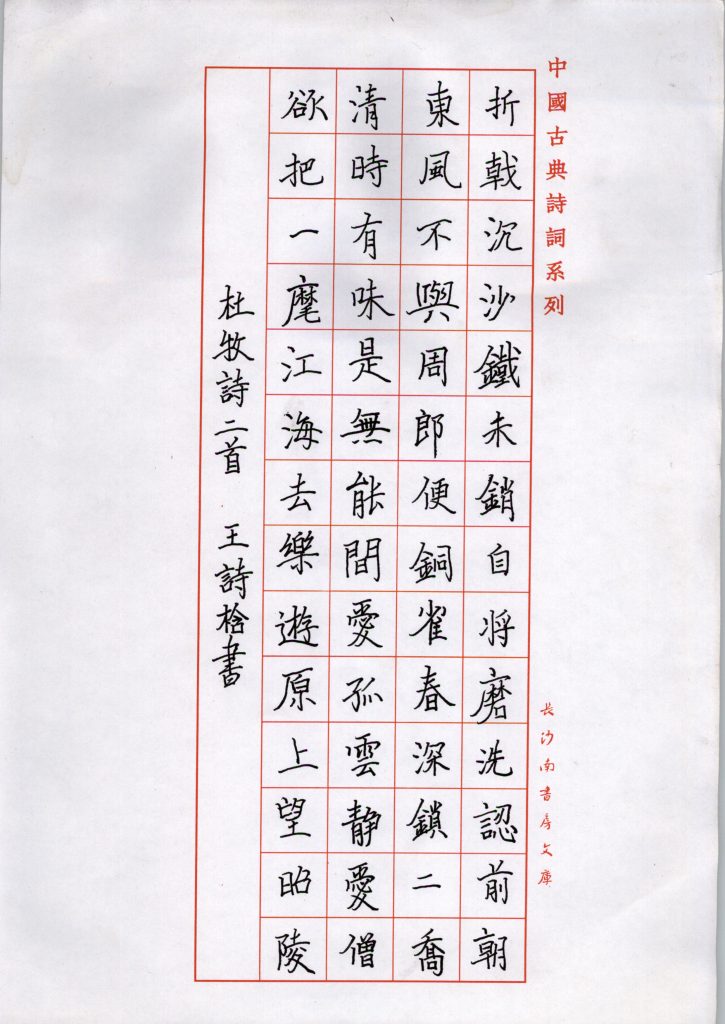 中國古典詩詞系列
折戟沉沙鐵未銷自將磨洗認前朝
東風不與周郎便銅雀春深鎖二喬
清時有味是無能間愛孤雲静愛僧
欲把一麾江海去樂遊原上望昭陵
杜牧詩二首 王詩 書
長沙南書房文庫